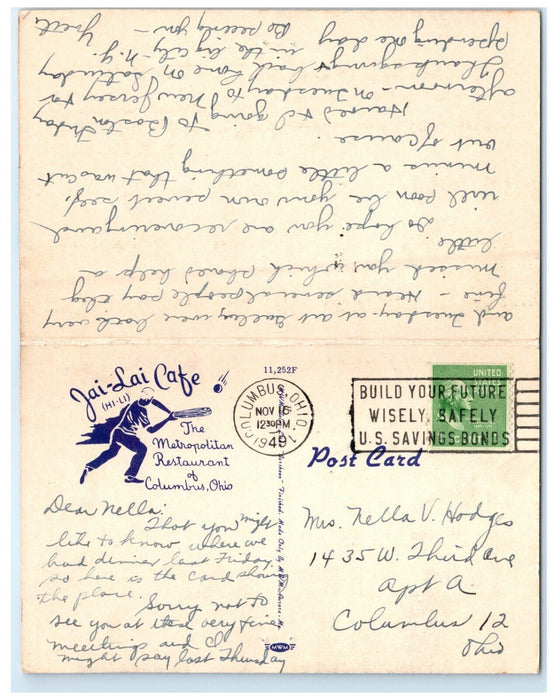 Jai-Lai Cafe
(HI-LI)
The
Metropolitan
Restaurant
of
Columbus, Ohio
11,252F
COLUMBUS, OHIO. 1
NOV 16
1230PM
1949
BUILD YOUR FUTURE
WISELY, SAFELY
U.S. SAVINGS BONDS
UNITED
STATES
Post Card
Dear Nella:
That you might
like to know where we
had dinner last Friday,
so here is the card showing
the place.
Sorry not to
see you at these very fine
meetings and I
might say last Thursday
MWM
Mrs. Nella V. Hodges
1435 W. Third Ave
Apt A.
Columbus 12
Ohio
and Tuesday at art gallery were both very
fine - Heard several people say they
missed you which should help a
little.
So hope you are recovering and
will soon be your own sweet self,
minus a little something that was cut
out of course.
and I going to Boston Friday
afternoon - on Tuesday to New Jersey for
Thanksgiving & back home on Saturday
spending one day in the big city - N.Y.
Be seeing you -